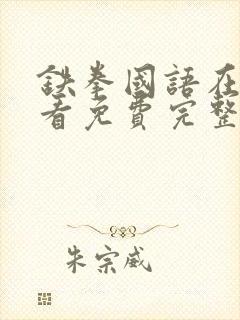 鉄拳國語在
看免費完整
朱宗威